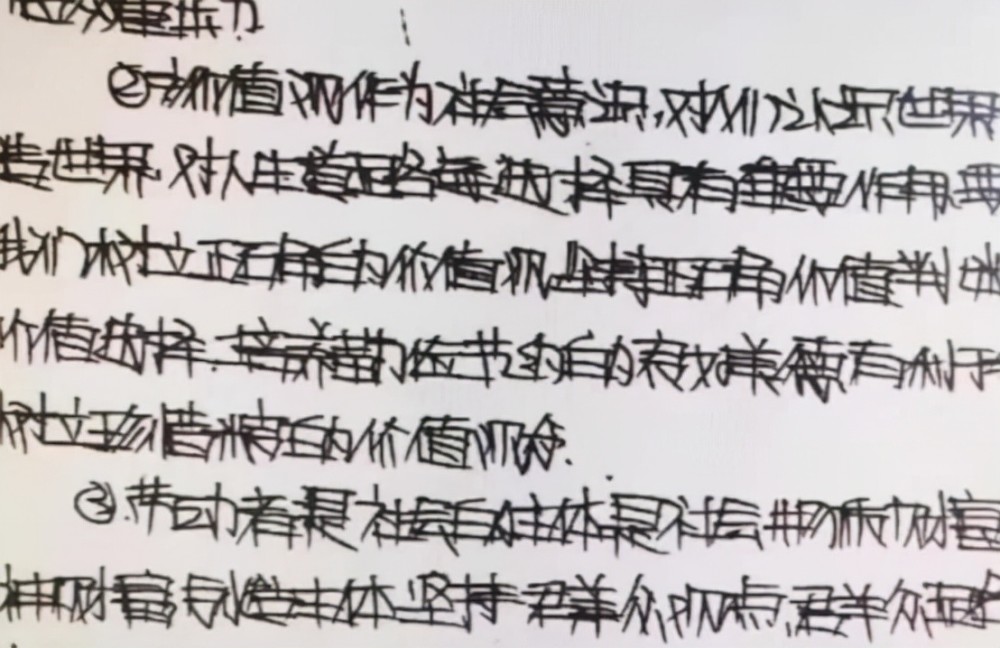 ②价值观作为社会意识,对人们认识世界
造世界,对人生道路的选择具有重要作用,要
我们树立正确的价值观,坚持正确价值判断
价值选择.培养勤俭节约的传统美德有利于
树立珍惜粮食的价值观念.
③劳动者是社会的主体是社会物质财富
神财富创造主体坚持群众观点,群众路